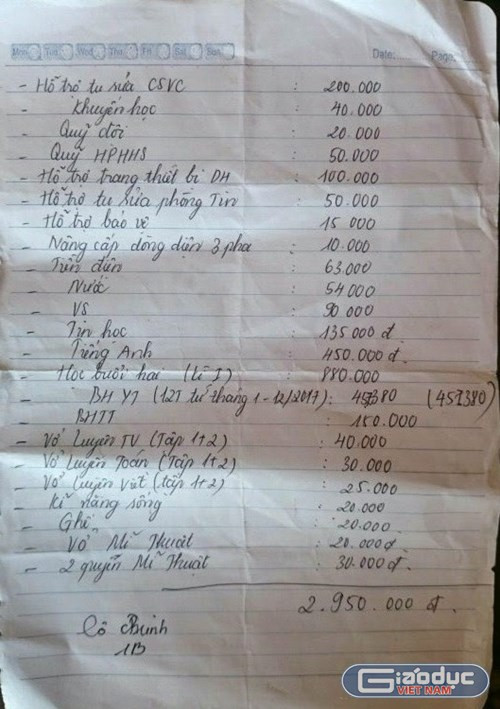 Mon Tue Wed Thu Fri Sat Sun Date: Page:
- Hỗ trợ tu sửa CSVC : 200.000
- Khuyến học : 40.000
- Quỹ đội : 20.000
- Quỹ HPHHS : 50.000
- Hỗ trợ trang thiết bị DH : 100.000
- Hỗ trợ tu sửa phòng Tin : 50.000
- Hỗ trợ bảo vệ : 15.000
- Nâng cấp dòng điện 3 pha : 10.000
- Tiền điện : 63.000
- Nước : 54.000
- VS : 90.000
- Tin học : 135.000 đ.
- Tiếng Anh : 450.000 đ.
- Học buổi hai (kì I) : 880.000
- BH YT (12T từ tháng 1-12/2017): 457380 (457.380)
- BHTT : 150.000
- Vở luyện TV (Tập 1+2) : 40.000
- Vở luyện Toán (Tập 1+2) : 30.000
- Vở luyện viết (tập 1+2) : 25.000
- Kĩ năng sống : 20.000
- Ghế : 20.000
- Vở Mĩ Thuật : 20.000 đ.
- 2 quyển Mĩ Thuật : 30.000 đ.
2.950.000 đ.
Cô
1B
Giáo dục
VIỆT NAM